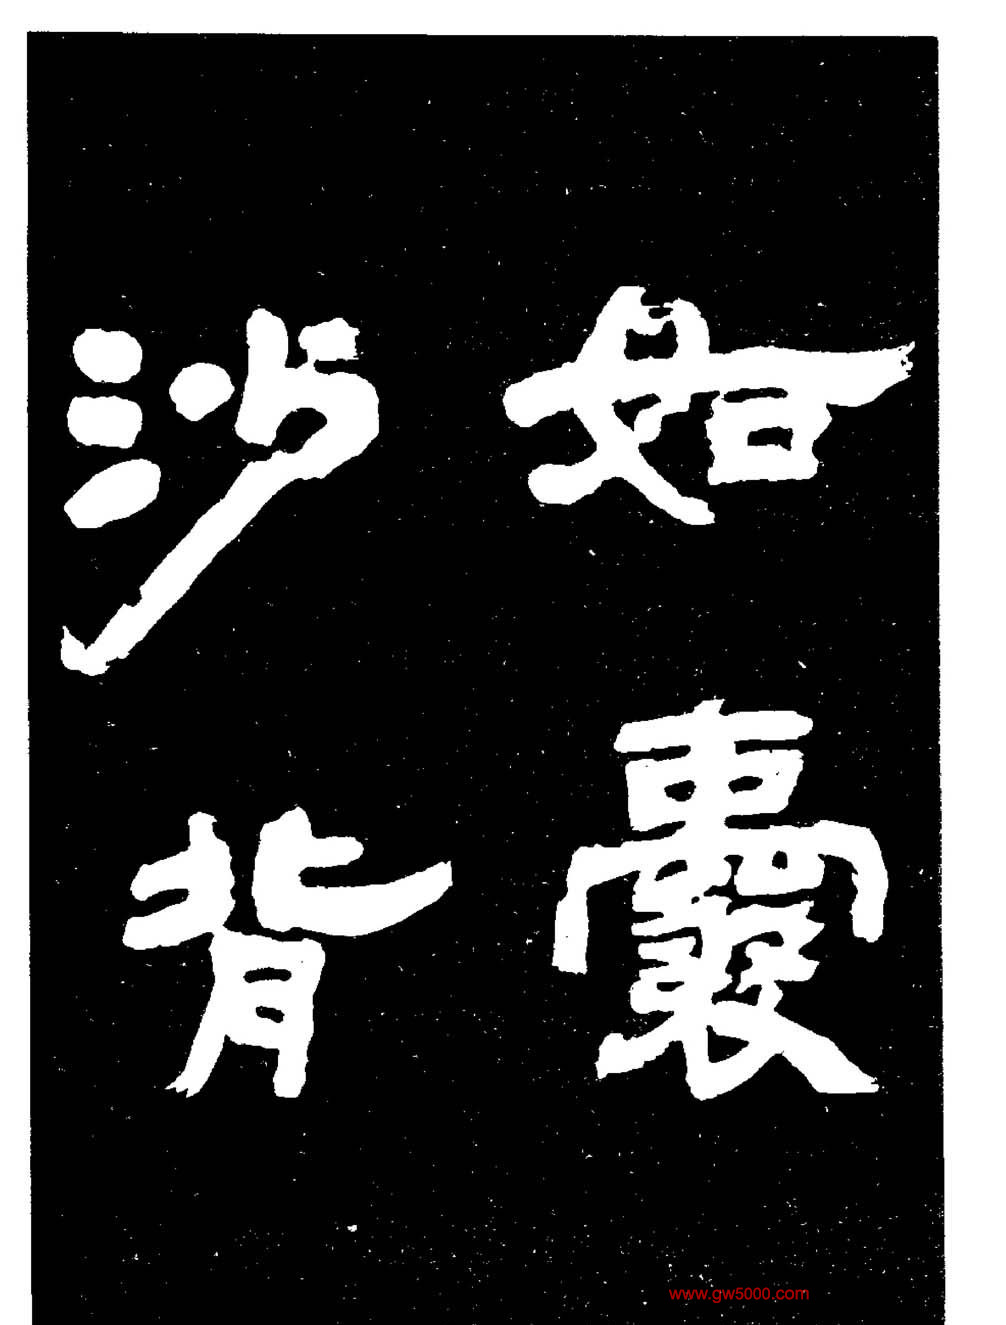 如囊
沙背
www.gw5000.com